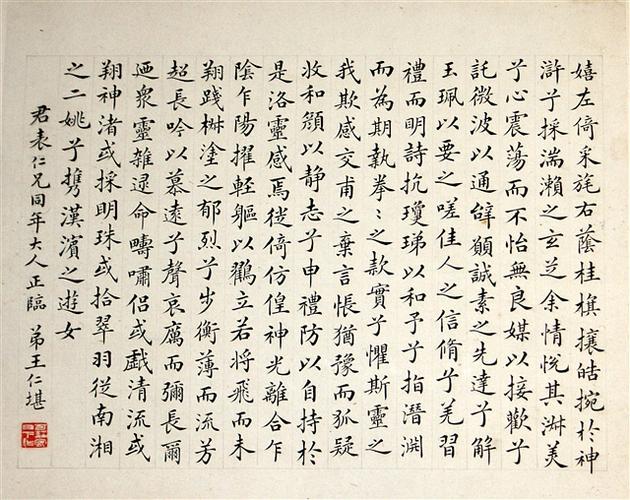 嬉左倚采旄右蔭桂旗攘皓捥於神
滸兮採湍瀨之玄芝余情悅其淑美
兮心震蕩而不怡無良媒以接歡兮
託微波以通辭願誠素之先達兮解
玉珮以要之嗟佳人之信脩兮羌習
禮而明詩抗瓊珶以和予兮指潛淵
而為期執拳〻之款實兮懼斯靈之
我欺感交甫之棄言悵猶豫而狐疑
收和顏以静志兮申禮防以自持於
是洛靈感焉徙倚仿偟神光離合乍
陰乍陽擢輕軀以鶴立若將飛而未
翔踐椒塗之郁烈兮步衡薄而流芳
超長吟以慕遠兮聲哀厲而彌長爾
迺眾靈雜遝命疇嘯侶或戲清流或
翔神渚或採明珠或拾翠羽從南湘
之二姚兮携漢濱之遊女
君表仁兄同年大人正臨 弟王仁堪